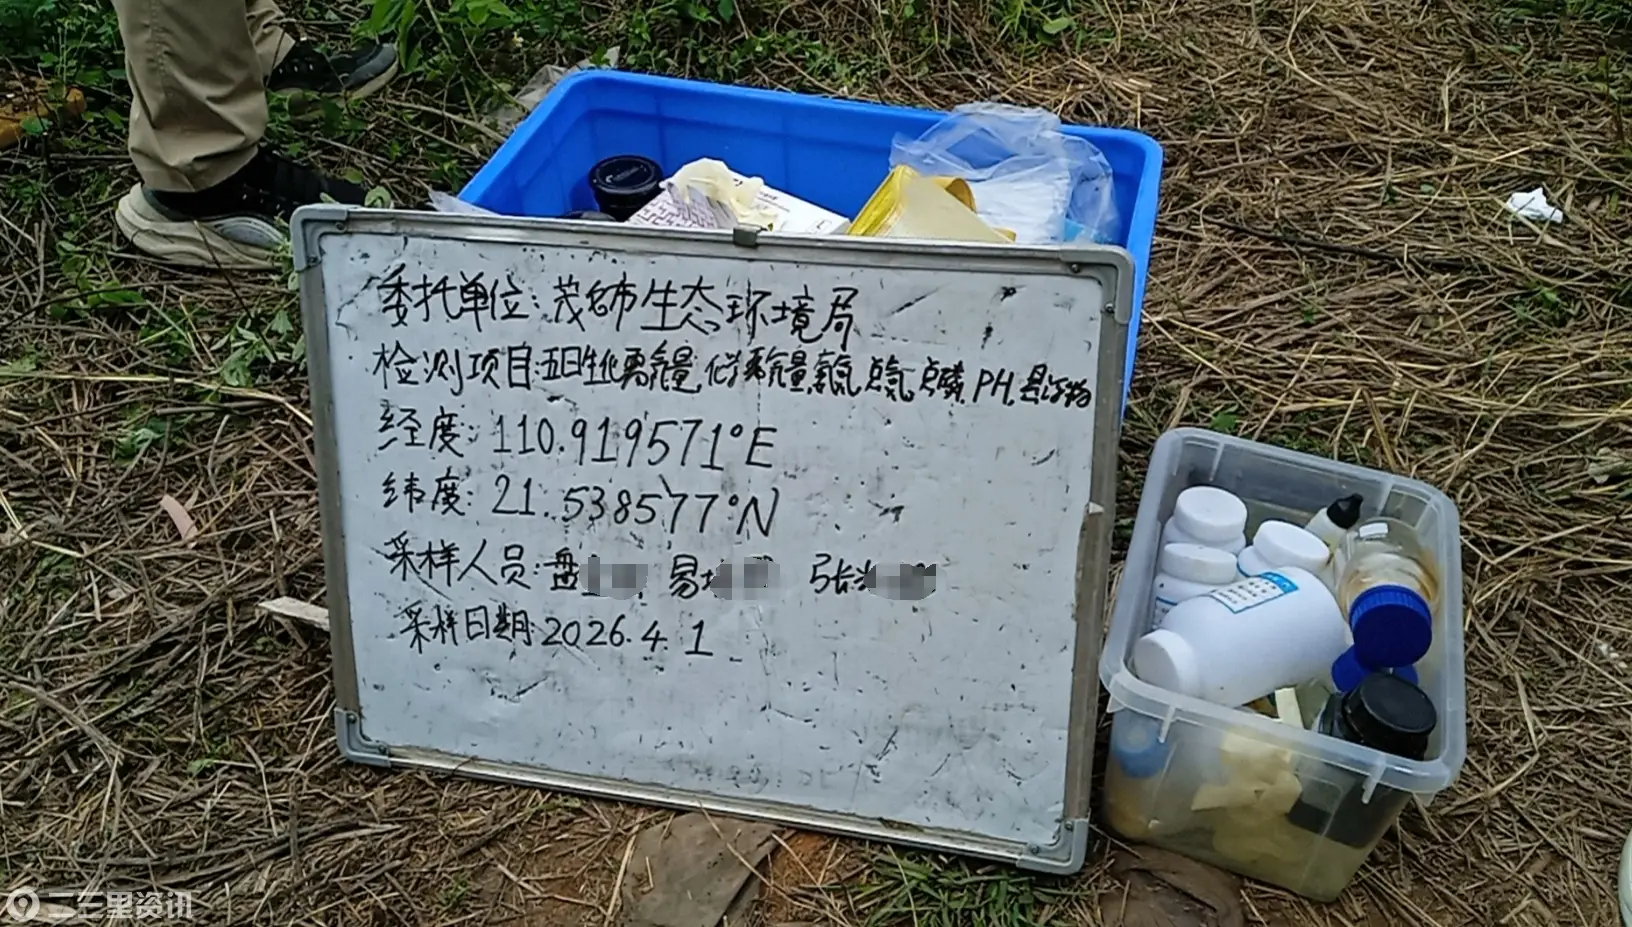 委托单位:茂名市生态环境局
检测项目:五日生化需氧量,化学需氧量,氨氮,总氮,总磷,PH,悬浮物
经度:110.919571°E
纬度:21.538577°N
采样人员:盘 易 张
采样日期:2026.4.1
二三里资讯